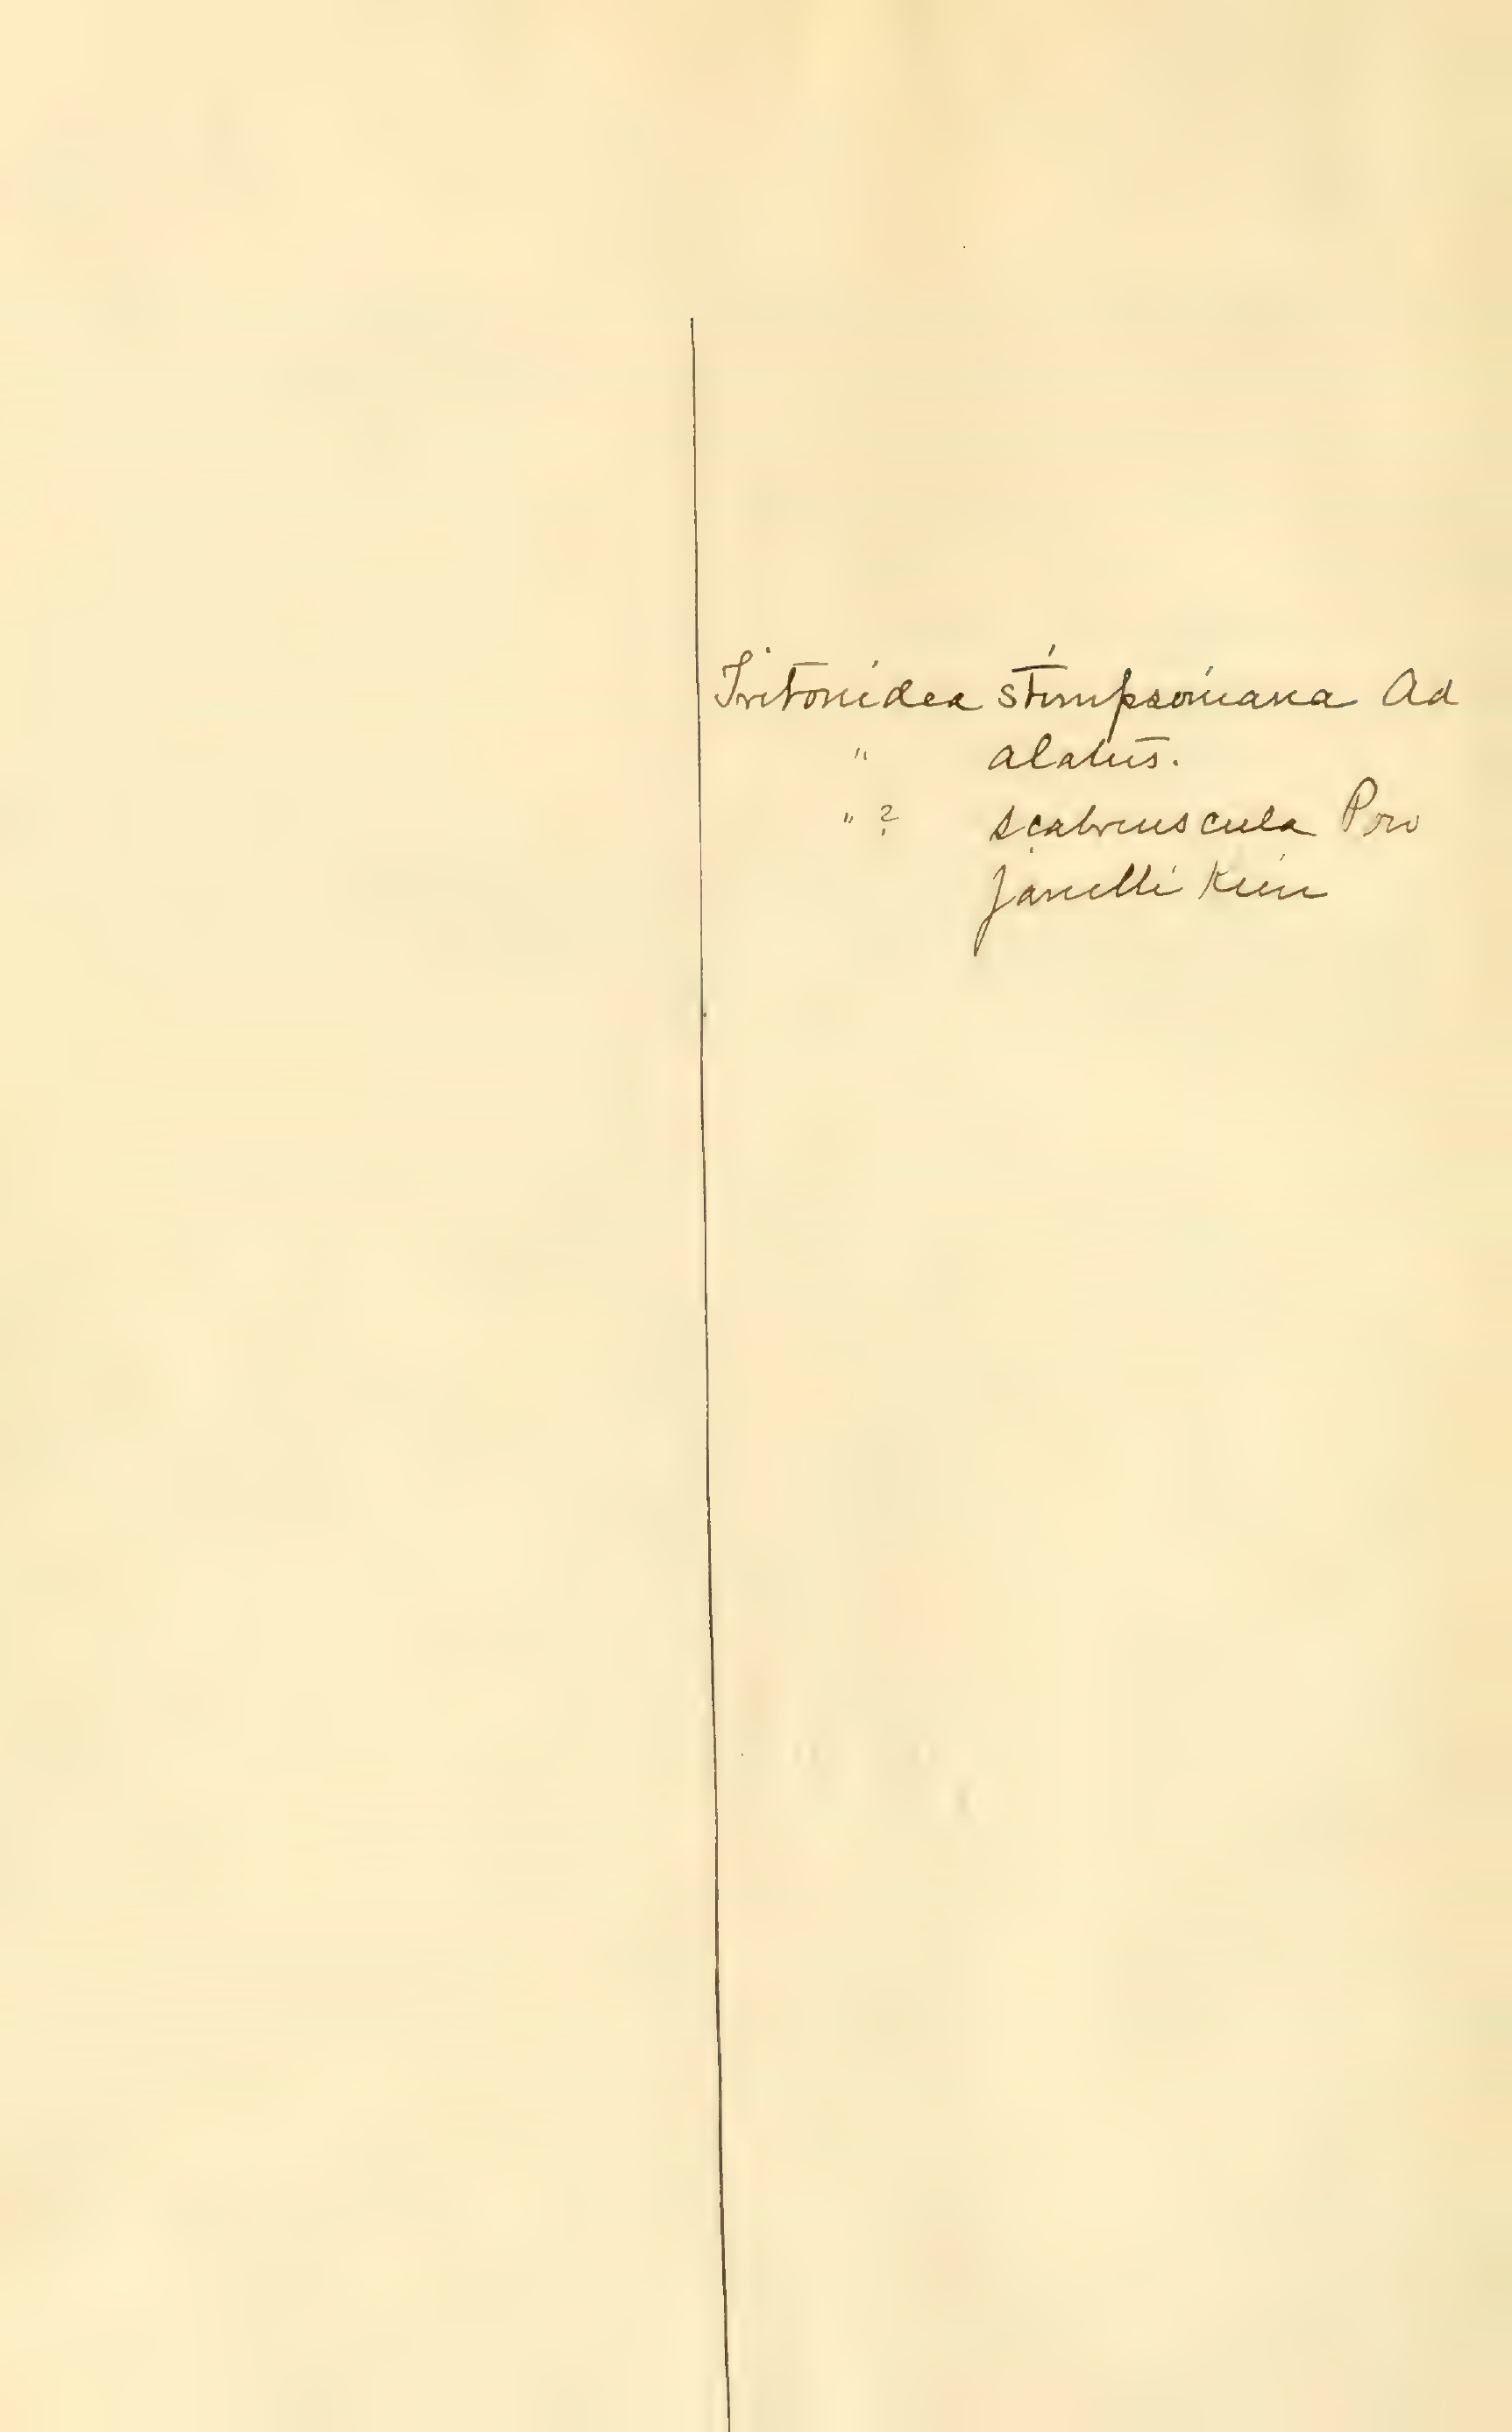 Tritonidea stimpsoniana Ad
" alatus.
" ? scabriuscula Pow
Janelli Kien